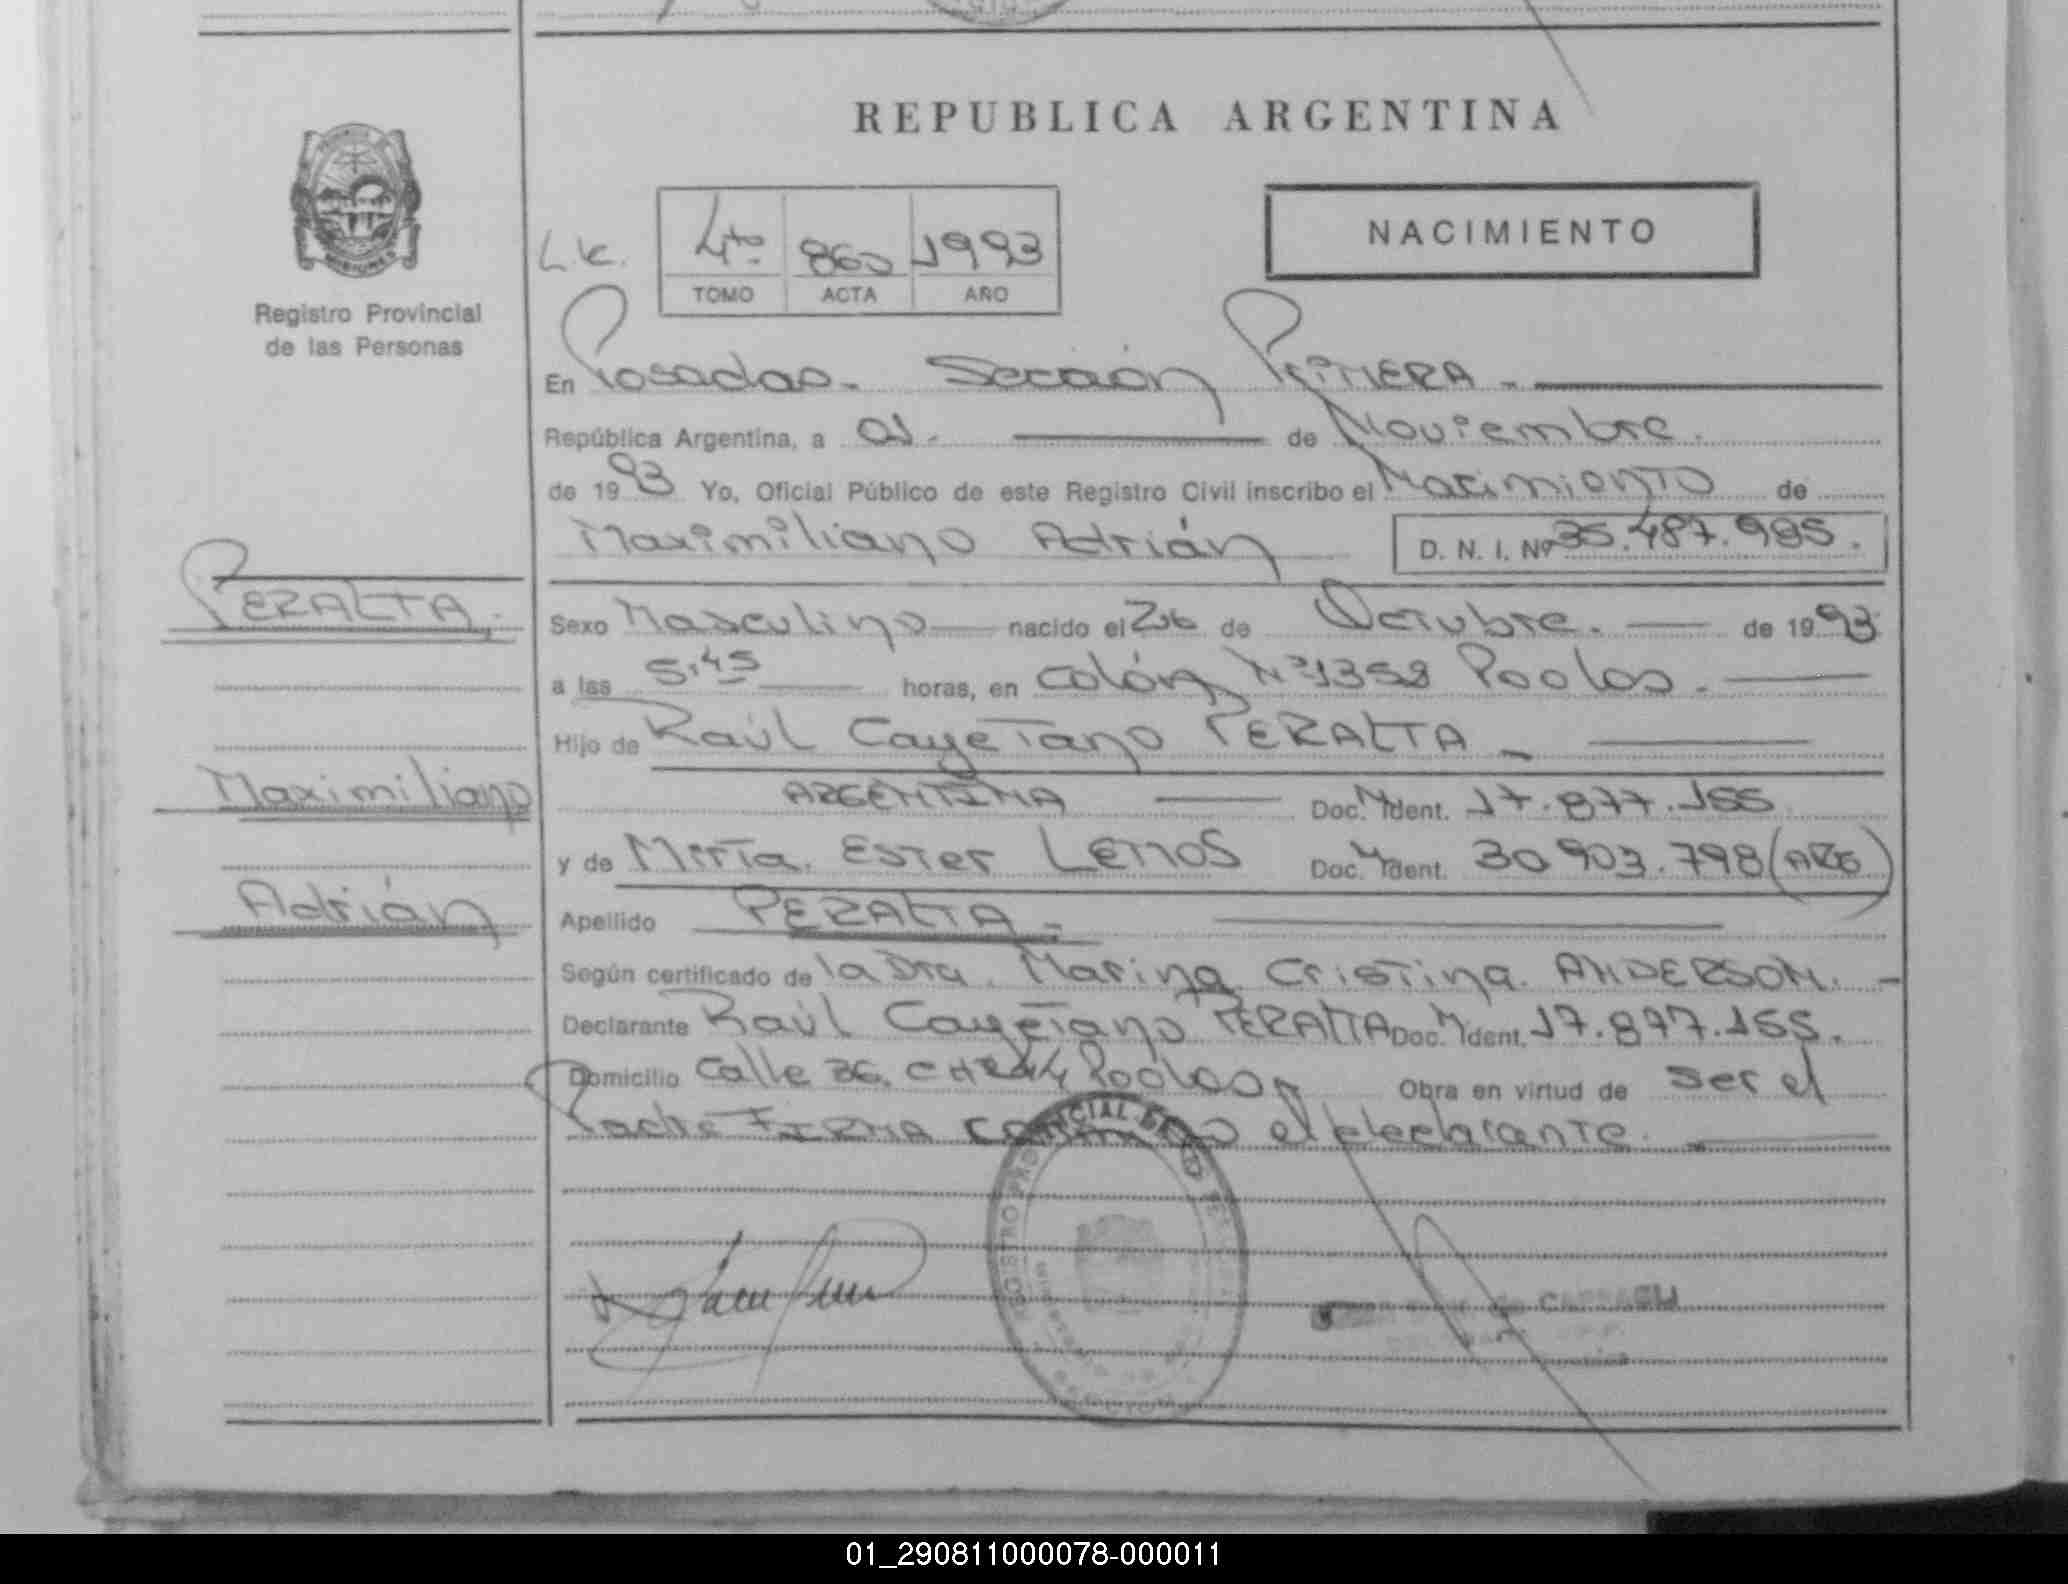 REPUBLICA ARGENTINA
NACIMIENTO
L.E. 4to 860 1993
TOMO ACTA AÑO
MISIONES
Registro Provincial
de las Personas
En Posadas. Sección PRIMERA.
República Argentina, a 01. de Noviembre.
de 1993 Yo, Oficial Público de este Registro Civil inscribo el Nacimiento de
Maximiliano Adrián D. N. I. Nº 35.487.985.
PERALTA.
Sexo Masculino nacido el 26 de Octubre. de 1993
a las 5:45 horas, en Colón Nº 1358 Posdas.
Hijo de Raúl Cayetano PERALTA
Maximiliano
ARGENTINA Doc. Ident. 17.877.155
y de Mirta. Ester LEMOS Doc. Ident. 30 903.798 (ARG)
Adrián
Apellido PERALTA
Según certificado de la Dra. Marina Cristina. ANDERSON.
Declarante Raúl Cayetano PERALTA Doc. Ident. 17.877.155.
Domicilio Calle 36. CH Posdas Obra en virtud de ser el
Padre FIRMA el declarante.
REGISTRO PROVINCIAL DE
01_290811000078-000011